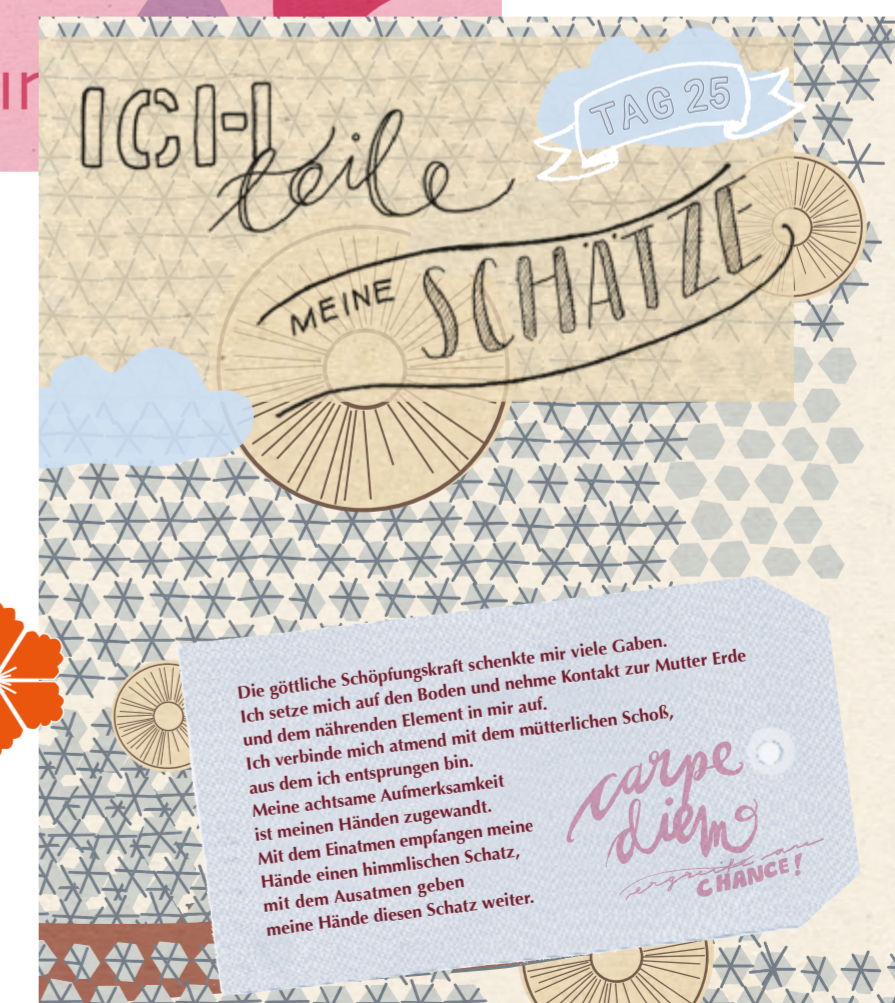 ICH
teile
TAG 25
MEINE SCHÄTZE
Die göttliche Schöpfungskraft schenkte mir viele Gaben.
Ich setze mich auf den Boden und nehme Kontakt zur Mutter Erde
und dem nährenden Element in mir auf.
Ich verbinde mich atmend mit dem mütterlichen Schoß,
aus dem ich entsprungen bin.
Meine achtsame Aufmerksamkeit
ist meinen Händen zugewandt.
Mit dem Einatmen empfangen meine
Hände einen himmlischen Schatz,
mit dem Ausatmen geben
meine Hände diesen Schatz weiter.
carpe
diem
ergreife
CHANCE!